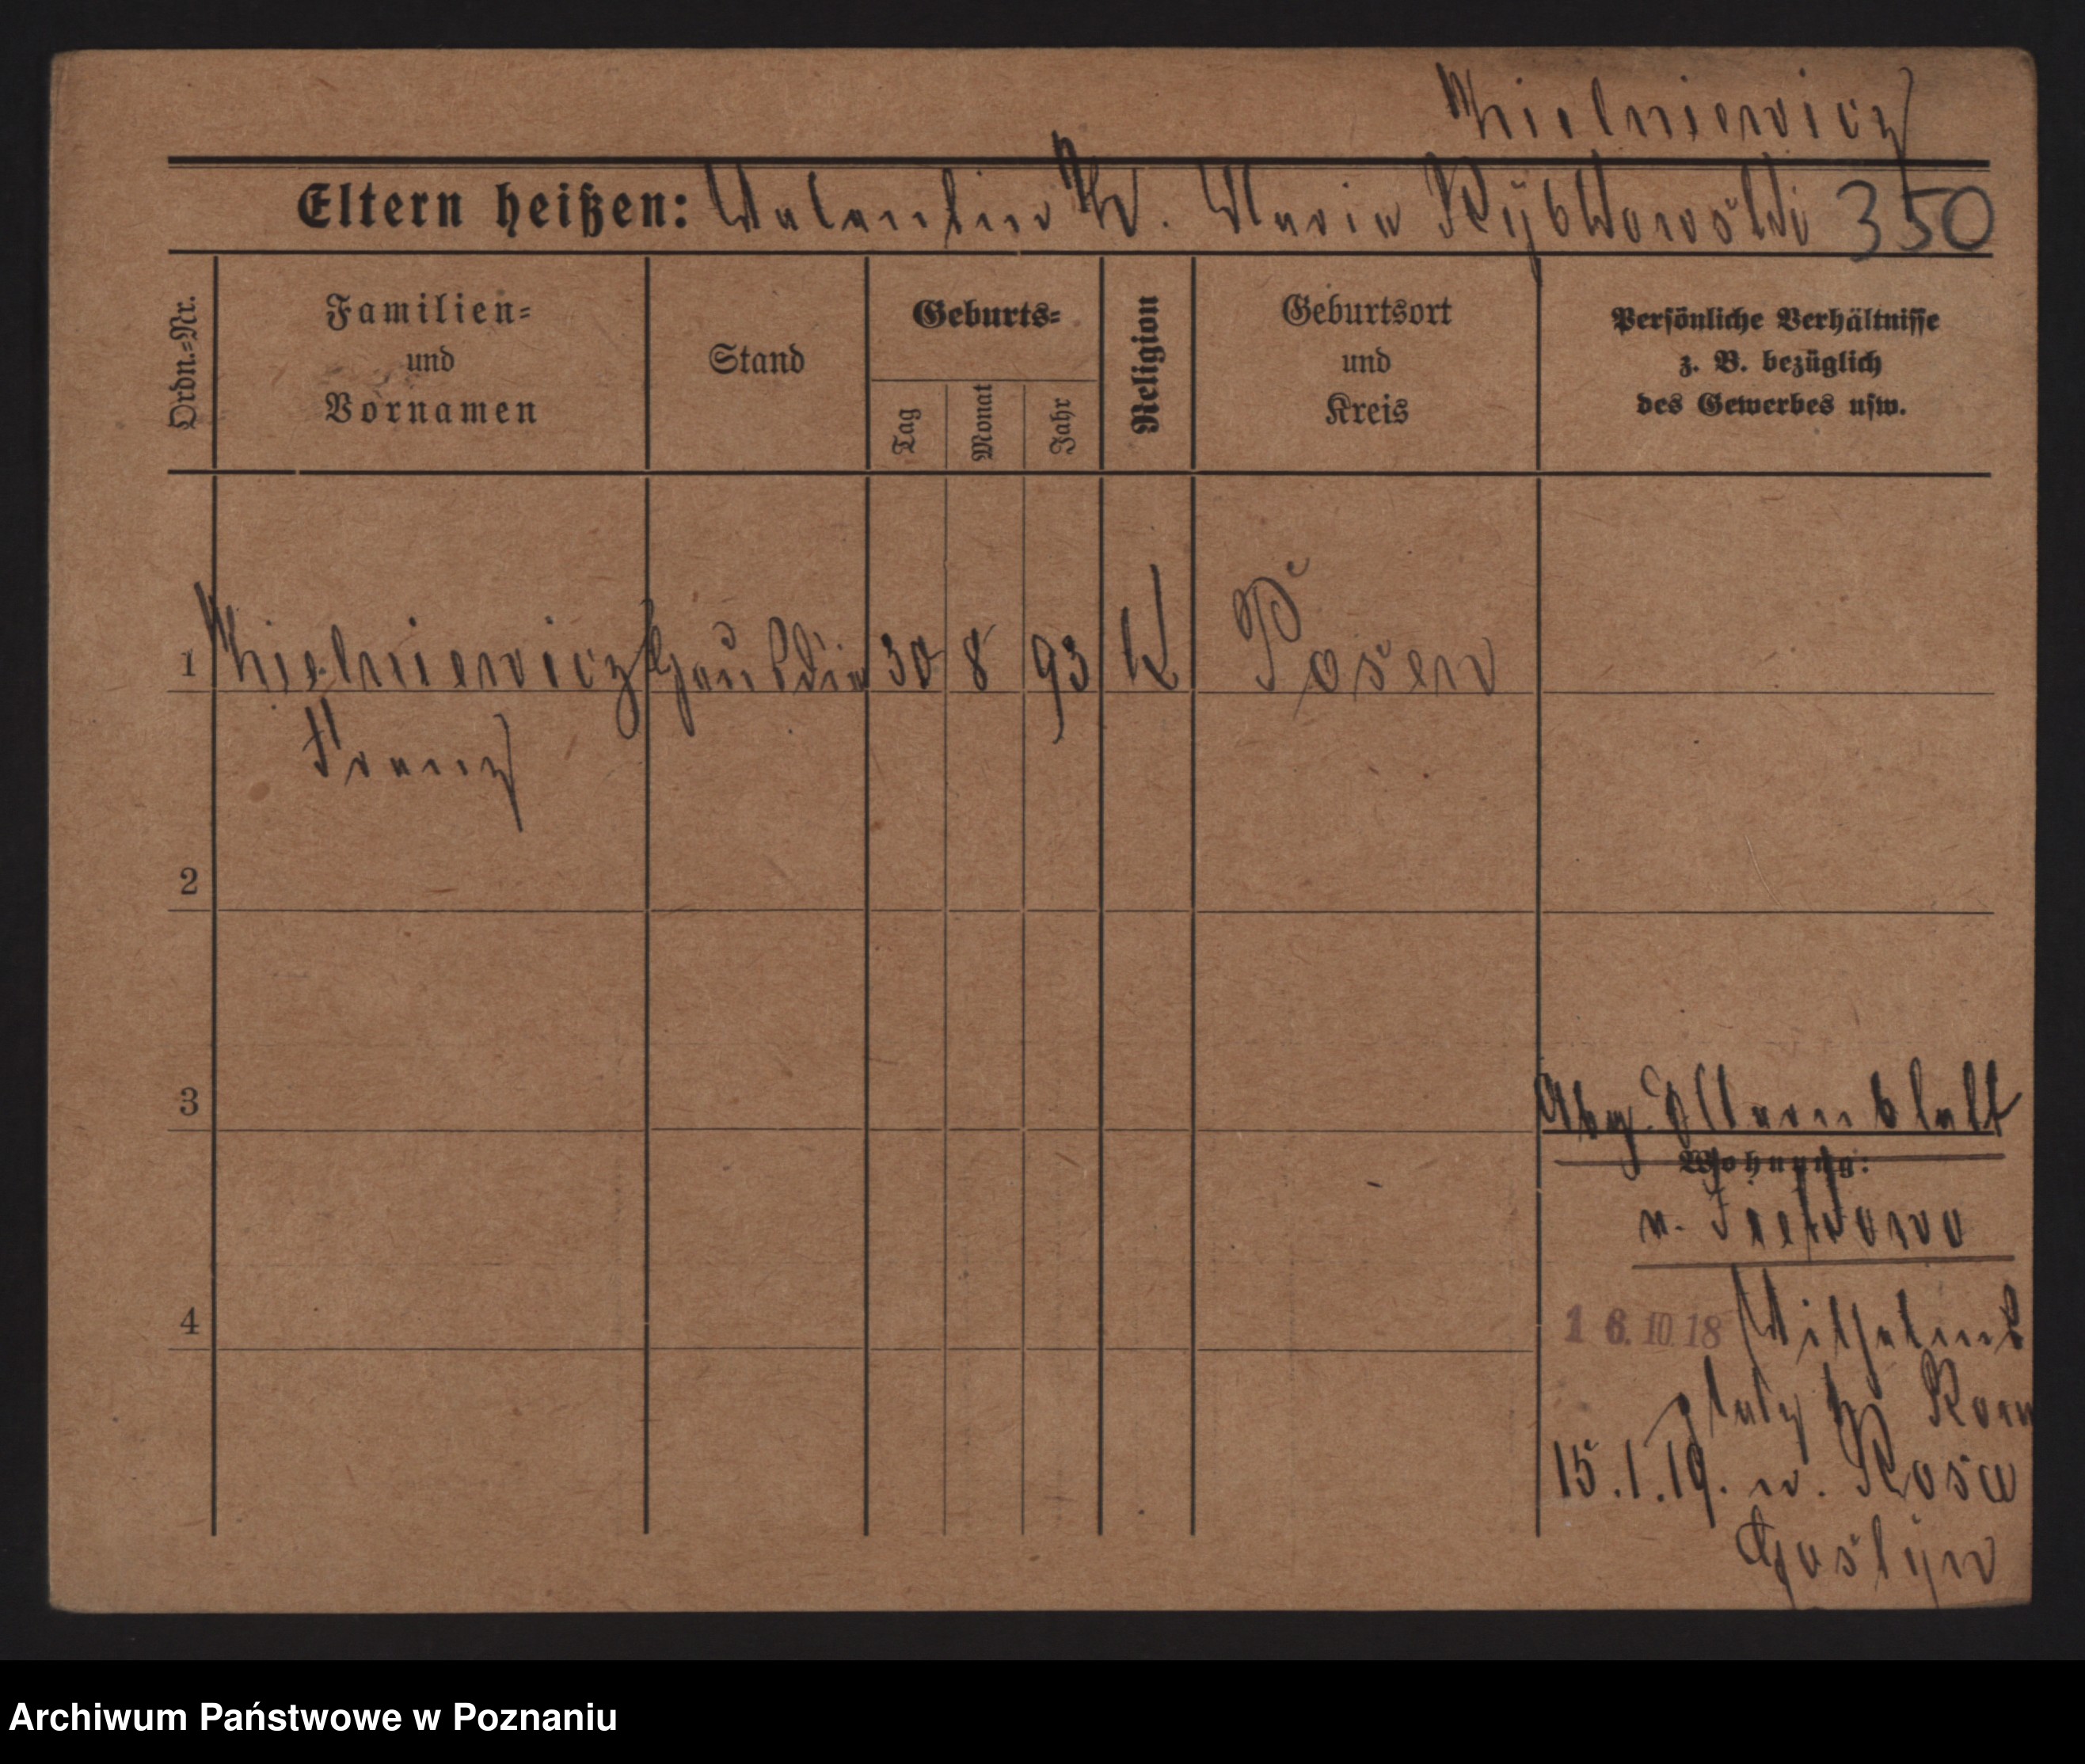 Kielniewicz
Eltern heißen: Valentin K. Maria Rybkowski 350
Ordn.-Nr.
Familien-
und
Vornamen
Stand
Geburts-
Tag
Monat
Jahr
Religion
Geburtsort
und
Kreis
Persönliche Verhältnisse
z. B. bezüglich
des Gewerbes usw.
1 Kielniewicz 30 8 93 K Posen
Franz
2
3
Abg. Elternblatt
Wohnung:
4
16. 10 18 Wilhelms
platz
15.1.19. n.
Gostyn
Archiwum Państwowe w Poznaniu